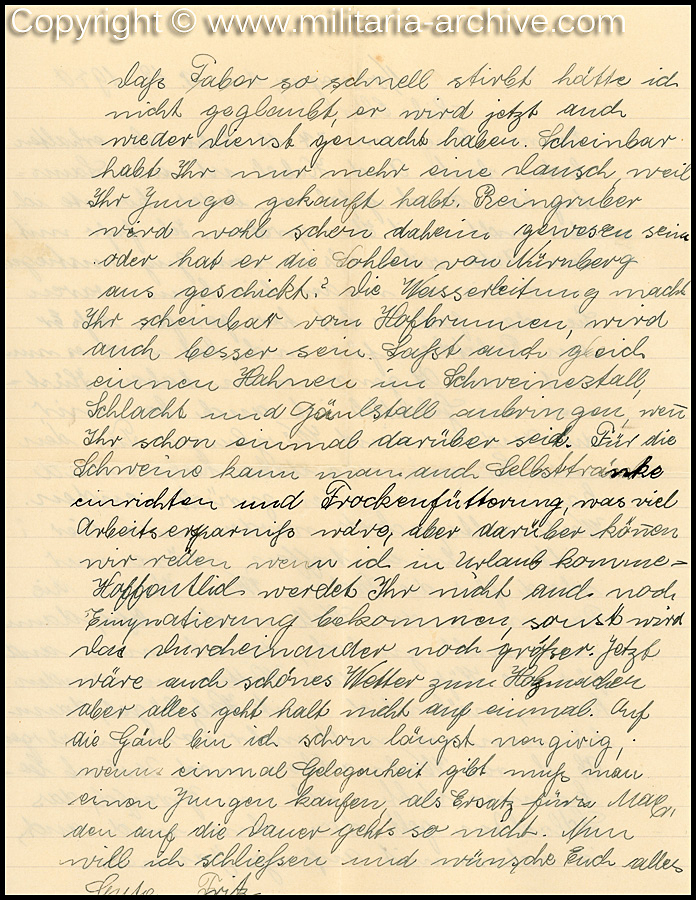 Copyright © www.militaria-archive.com
daß Tabor so schnell stirbt hätte ich
nicht geglaubt, er wird jetzt auch
wieder Dienst gemacht haben. Scheinbar
habt Ihr nur mehr eine Dausch, weil
Ihr Junge gekauft habt. Reingruber
wird wohl schon daheim gewesen sein
oder hat er die Sohlen von Nürnberg
aus geschickt? Die Wasserleitung macht
Ihr scheinbar vom Hofbrunnen, wird
auch besser sein. Laßt auch gleich
einnen Hahnen im Schweinestall,
Schlacht und Gäulstall anbringen, wen̄
Ihr schon einmal darüber seid. Für die
Schweine kann man auch Selbsttranke
einrichten und Trockenfütterung, was viel
Arbeitserparniß wäre, aber darüber kön̄en
wir reden wenn ich in Urlaub komme=
Hoffentlich werdet Ihr nicht auch noch
sonst wird
das Durcheinander noch größer. Jetzt
wäre auch schönes Wetter zum Holzmachen
aber alles geht halt nicht auf einmal. Auf
die Gäul bin ich schon längst neugirig,
wenn einmal Gelegenheit gibt muß man
einen Jungen kaufen, als Ersatz fürn
den auf die Dauer gehts so nicht. Nun
will ich schließen und wünsche Euch alles
Gute Fritz